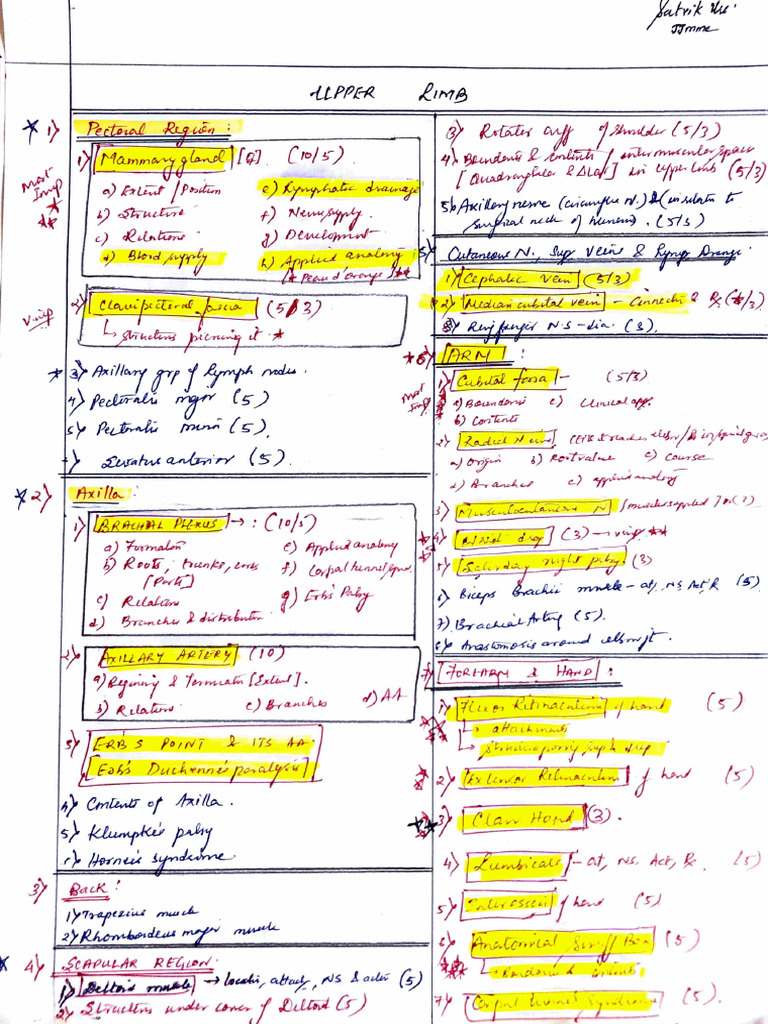 JJMMC
UPPER LIMB
* 1) Pectoral Region :
Most Imp
1) Mammary gland [Q] (10/5)
a) Extent / Position
b) Structure
c) Relations
d) Blood supply
e) Lymphatic drainage
f) Nerve supply
g) Development
h) Applied anatomy
[* Peau d'orange] **
V. imp
2) Clavipectoral fascia (5/3)
↳ structures piercing it *
* 3) Axillary grp of lymph nodes
4) Pectoralis major (5)
5) Pectoralis minor (5)
Serratus anterior (5).
* 2) Axilla :
1) BRACHIAL PLEXUS → : (10/5)
a) Formation
b) Roots, trunks, cords
[Parts]
c) Relations
d) Branches & distribution
e) Applied anatomy
f) Carpal tunnel
g) Erb's Palsy
2) AXILLARY ARTERY (10)
a) Begining & Termination [Extent].
b) Relations c) Branches d) AA
3) ERB'S POINT & ITS AA
Erb's Duchenne's paralysis
4) Contents of Axilla.
5) Klumpke's palsy
Horner's syndrome
3) BACK :
1) Trapezius muscle
2) Rhomboideus major muscle
* 4) SCAPULAR REGION
1) Deltoid muscle → locatn, attach, NS & actn (5)
2) Structures under cover of Deltoid (5)
3) Rotator cuff of shoulder (5/3)
4) Boundaries & contents of intermuscular space
[Quadrangular & ΔLar] in upper limb (5/3)
5) Axillary nerve (circumflex N.) & (in relatn to
surgical neck of humerus. (5/3)
5) Cutaneous N., Sup Veins & Lymp Drange
1) Cephalic Vein (5/3)
2) Median cubital vein - Connectn &
3) Ring finger N.S - dia. (3).
* 6) ARM :
Most Imp
1) Cubital fossa - (5/3)
a) Boundaries c) Clinical app.
b) Contents
2) Radial Nerve
a) Origin b) Root value c) Course
d) Branches e) applied anatomy
3) Musculocutaneous N
4) Wrist drop (3) →
5) Saturday night palsy (3)
6) Biceps Brachii muscle - at, NS, Act, R (5)
7) Brachial Artery (5).
8) Anastomosis around elbow jt.
7) FOREARM & HAND :
1) Flexor Retinaculum of hand (5)
↳ attachments
↳ structures passing sup & deep
2) Extensor Retinaculum of hand (5)
3) Claw Hand (3).
4) Lumbricals - at, NS, Act, (5)
5) Interossei of hand (5)
6) Anatomical Snuff Box (5)
↳ Boundaries & Contents
7) Carpal tunnel syndrome (5).